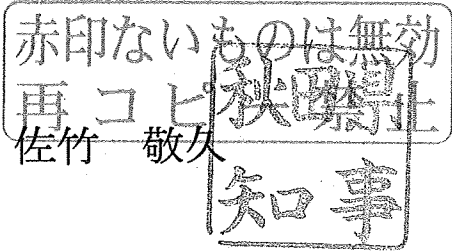 赤印ないものは無効
再コピー禁止
佐竹　敬久
秋田県
知事